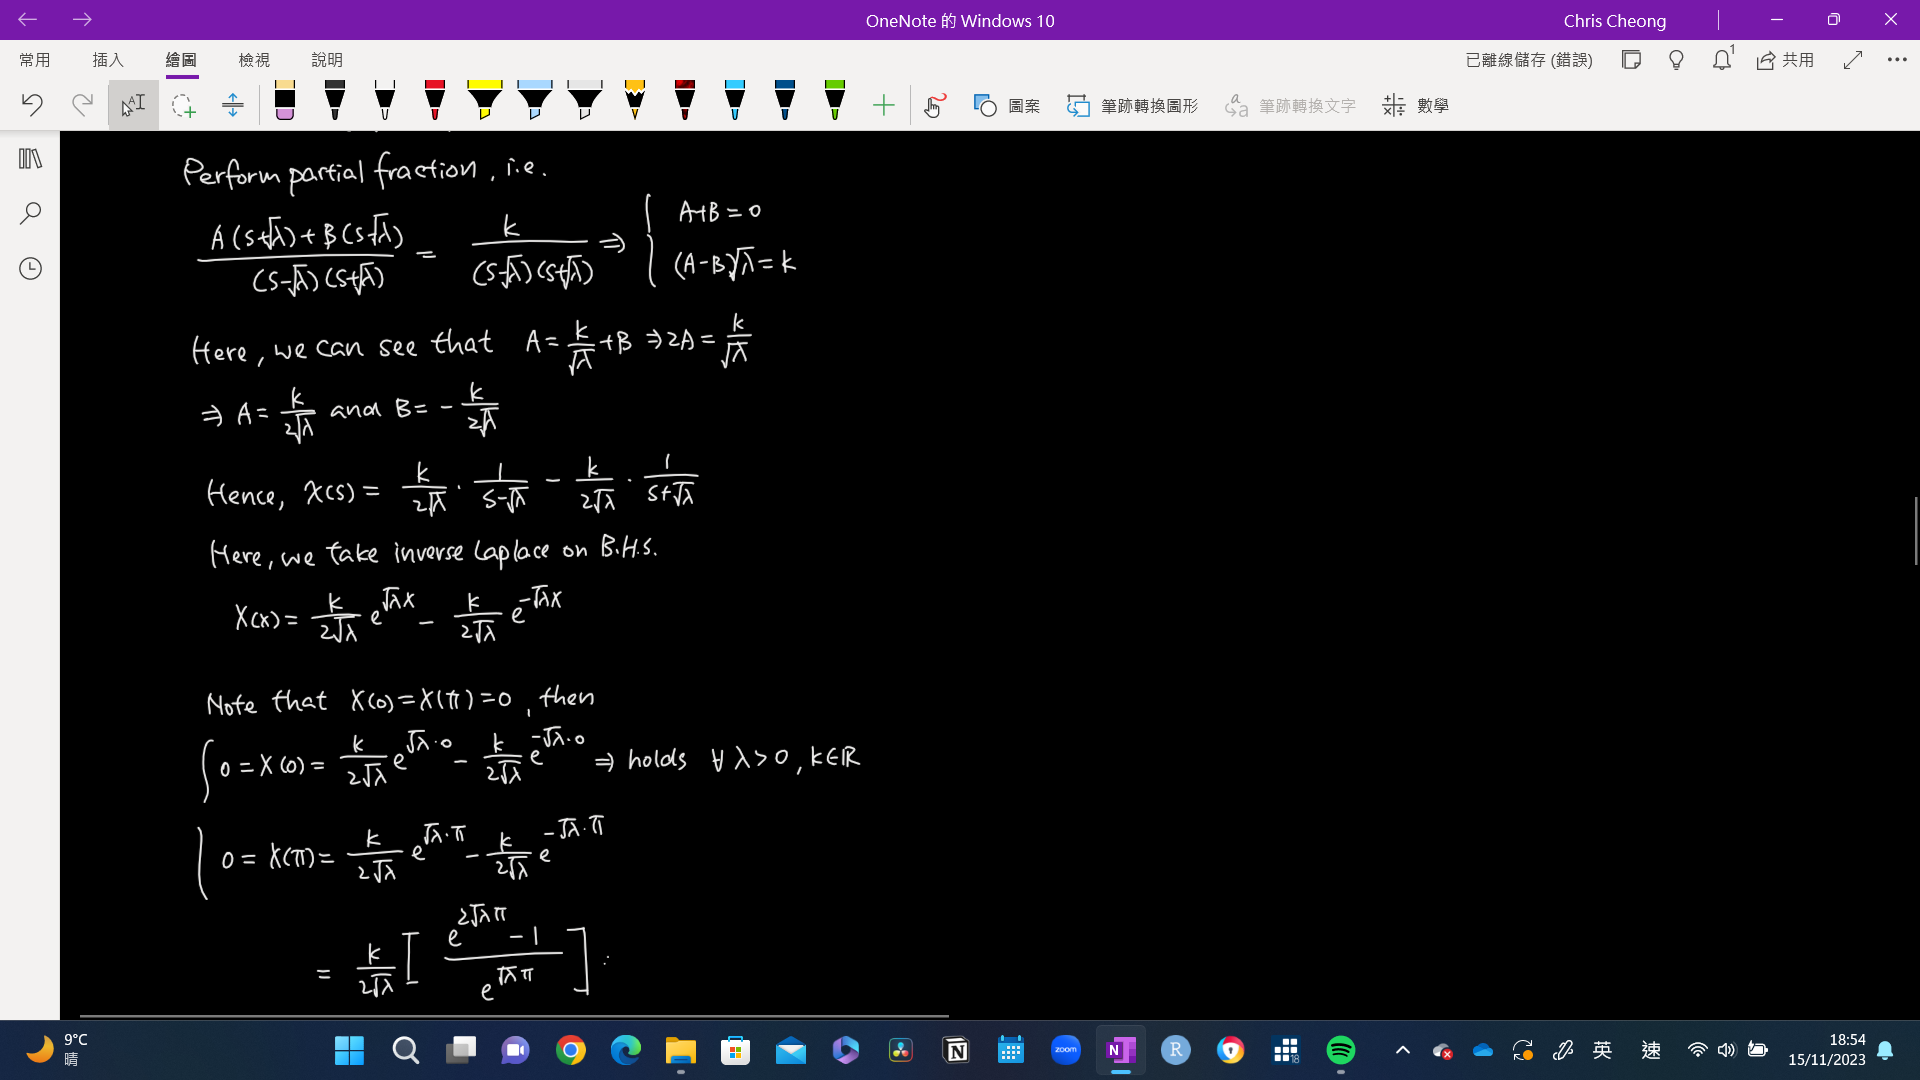 OneNote 的 Windows 10
Chris Cheong
常用 插入 繪圖 檢視 說明
已離線儲存 (錯誤) 1 共用
圖案 筆跡轉換圖形 筆跡轉換文字 數學
Perform partial fraction, i.e.
(A(s+√λ)+B(s-√λ))/((s-√λ)(s+√λ)) = k/((s-√λ)(s+√λ)) ⇒ { A+B=0
(A-B)√λ=k
Here, we can see that A = k/√λ + B ⇒ 2A = k/√λ
⇒ A = k/(2√λ) and B = - k/(2√λ)
Hence, X(s) = k/(2√λ) · 1/(s-√λ) - k/(2√λ) · 1/(s+√λ)
Here, we take inverse Laplace on B.H.S.
X(x) = k/(2√λ) e^(√λx) - k/(2√λ) e^(-√λx)
Note that X(0)=X(π)=0, then
{ 0 = X(0) = k/(2√λ) e^(√λ·0) - k/(2√λ) e^(-√λ·0) ⇒ holds ∀ λ>0, k∈ℝ
0 = X(π) = k/(2√λ) e^(√λ·π) - k/(2√λ) e^(-√λ·π)
= k/(2√λ) [ (e^(2√λπ) - 1)/e^(√λπ) ]
9°C
晴
zoom
N
R
18
英 速
18:54
15/11/2023